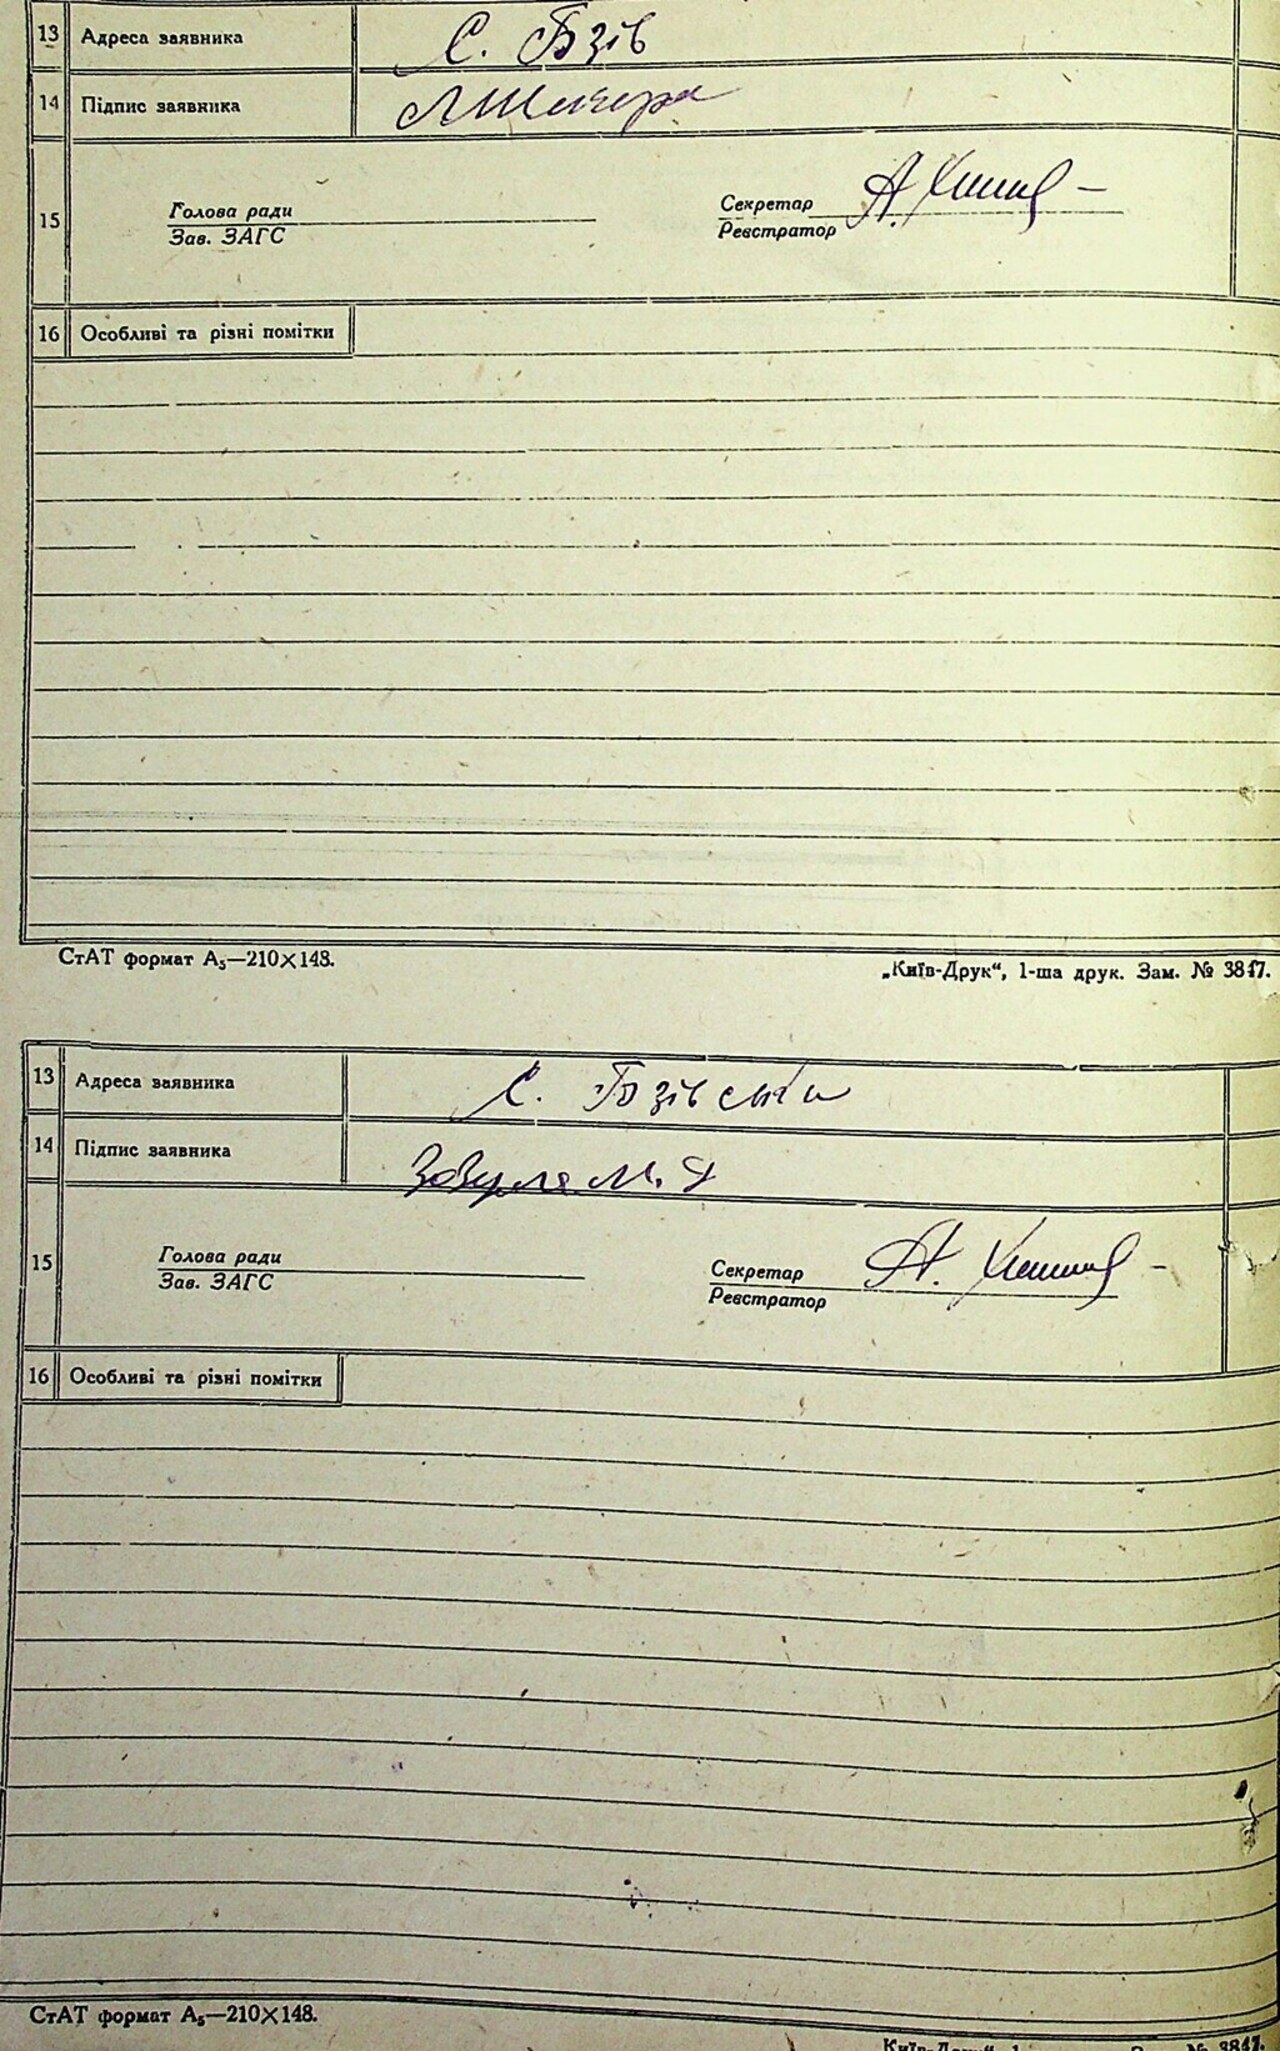 13 Адреса заявника С. Бзів
14 Підпис заявника
15 Голова ради Секретар
Зав. ЗАГС Реєстратор
16 Особливі та різні помітки
СтАТ формат А₅—210×148.
„Київ-Друк“, 1-ша друк. Зам. № 3847.
13 Адреса заявника С.
14 Підпис заявника
15 Голова ради Секретар
Зав. ЗАГС Реєстратор
16 Особливі та різні помітки
СтАТ формат А₅—210×148.
№ 3847.